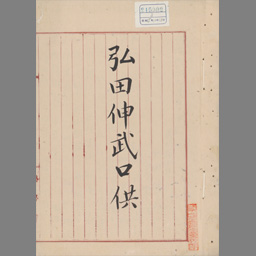 弘田伸武口供